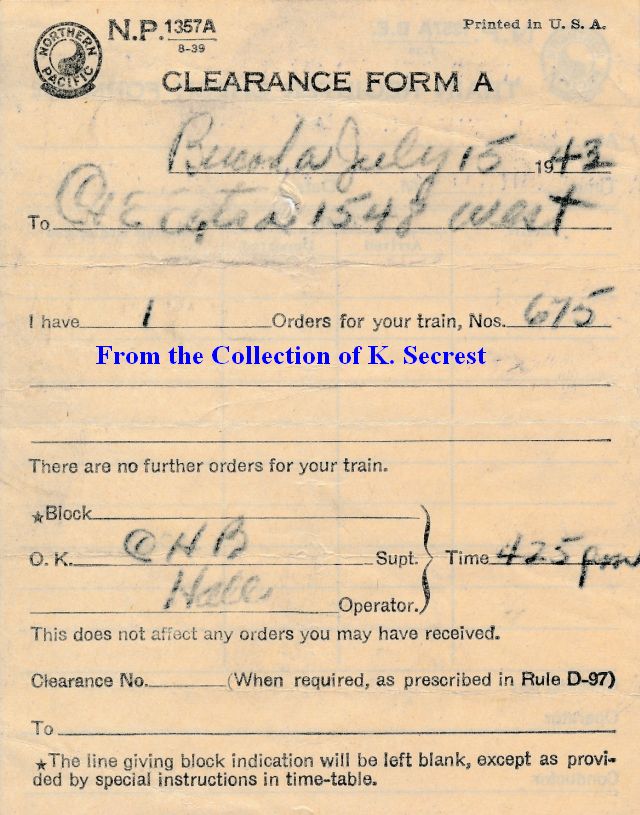 NORTHERN PACIFIC
N.P. 1357A
8-39
Printed in U. S. A.
CLEARANCE FORM A
Bucoda July 15 1943
To C&E Extra 1548 West
I have 1 Orders for your train, Nos. 675
From the Collection of K. Secrest
There are no further orders for your train.
★Block
O. K. CHB Supt. Time 425 pm
Hall Operator.
This does not affect any orders you may have received.
Clearance No. (When required, as prescribed in Rule D-97)
To
★The line giving block indication will be left blank, except as provi-
ded by special instructions in time-table.